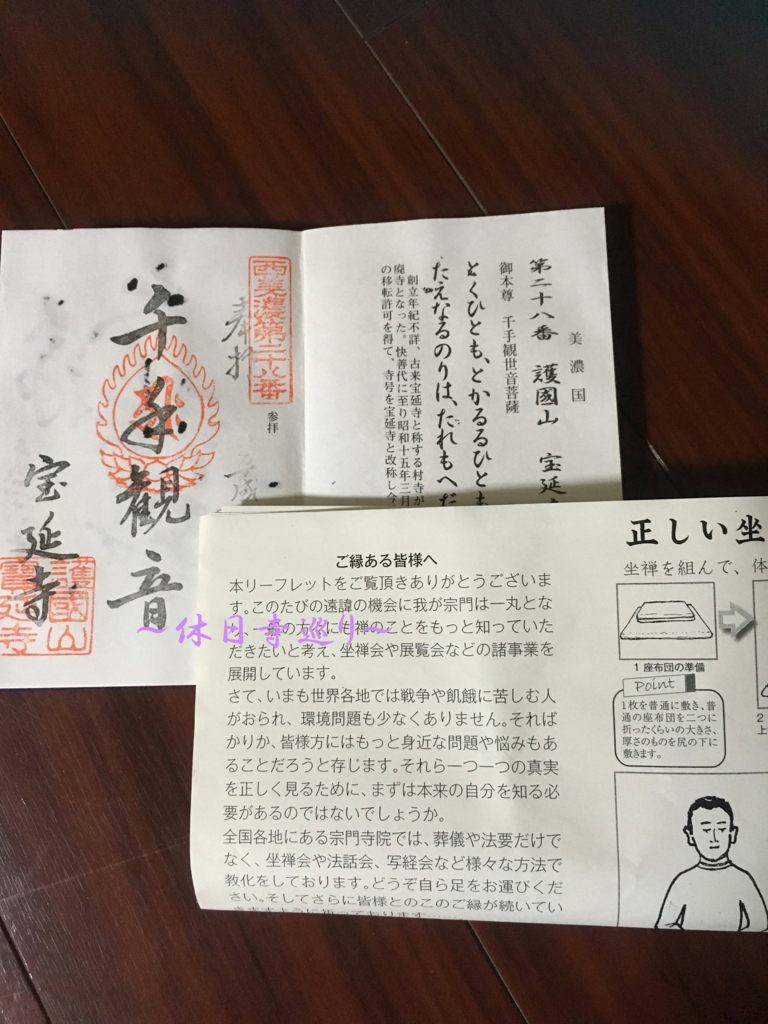 美濃国
第二十八番 護國山 宝延
御本尊 千手観世音菩薩
とくひとも、とかるるひとも
たえなるのりは、たれもへだ
創立年紀不詳、古来宝延寺と称する村寺が
廃寺となった。快善代に至り昭和十五年三月
の移転許可を得て、寺号を宝延寺と改称し今
西美濃第二十八番
奉拝
参拝
千手観音
宝延寺
護國山
寶延寺
~休日寺巡り~
ご縁ある皆様へ
本リーフレットをご覧頂きありがとうございま
す。このたびの遠諱の機会に我が宗門は一丸とな
の方々にも禅のことをもっと知っていた
だきたいと考え、坐禅会や展覧会などの諸事業を
展開しています。
さて、いまも世界各地では戦争や飢餓に苦しむ人
がおられ、環境問題も少なくありません。それば
かりか、皆様方にはもっと身近な問題や悩みもあ
ることだろうと存じます。それら一つ一つの真実
を正しく見るために、まずは本来の自分を知る必
要があるのではないでしょうか。
全国各地にある宗門寺院では、葬儀や法要だけで
なく、坐禅会や法話会、写経会など様々な方法で
教化をしております。どうぞ自ら足をお運びくだ
さい。そしてさらに皆様とのこのご縁が続いてい
きますように祈っております
正しい坐
坐禅を組んで、体
1 座布団の準備
Point
1枚を普通に敷き、普
通の座布団を二つに
折ったくらいの大きさ、
厚さのものを尻の下に
敷きます。
2
上